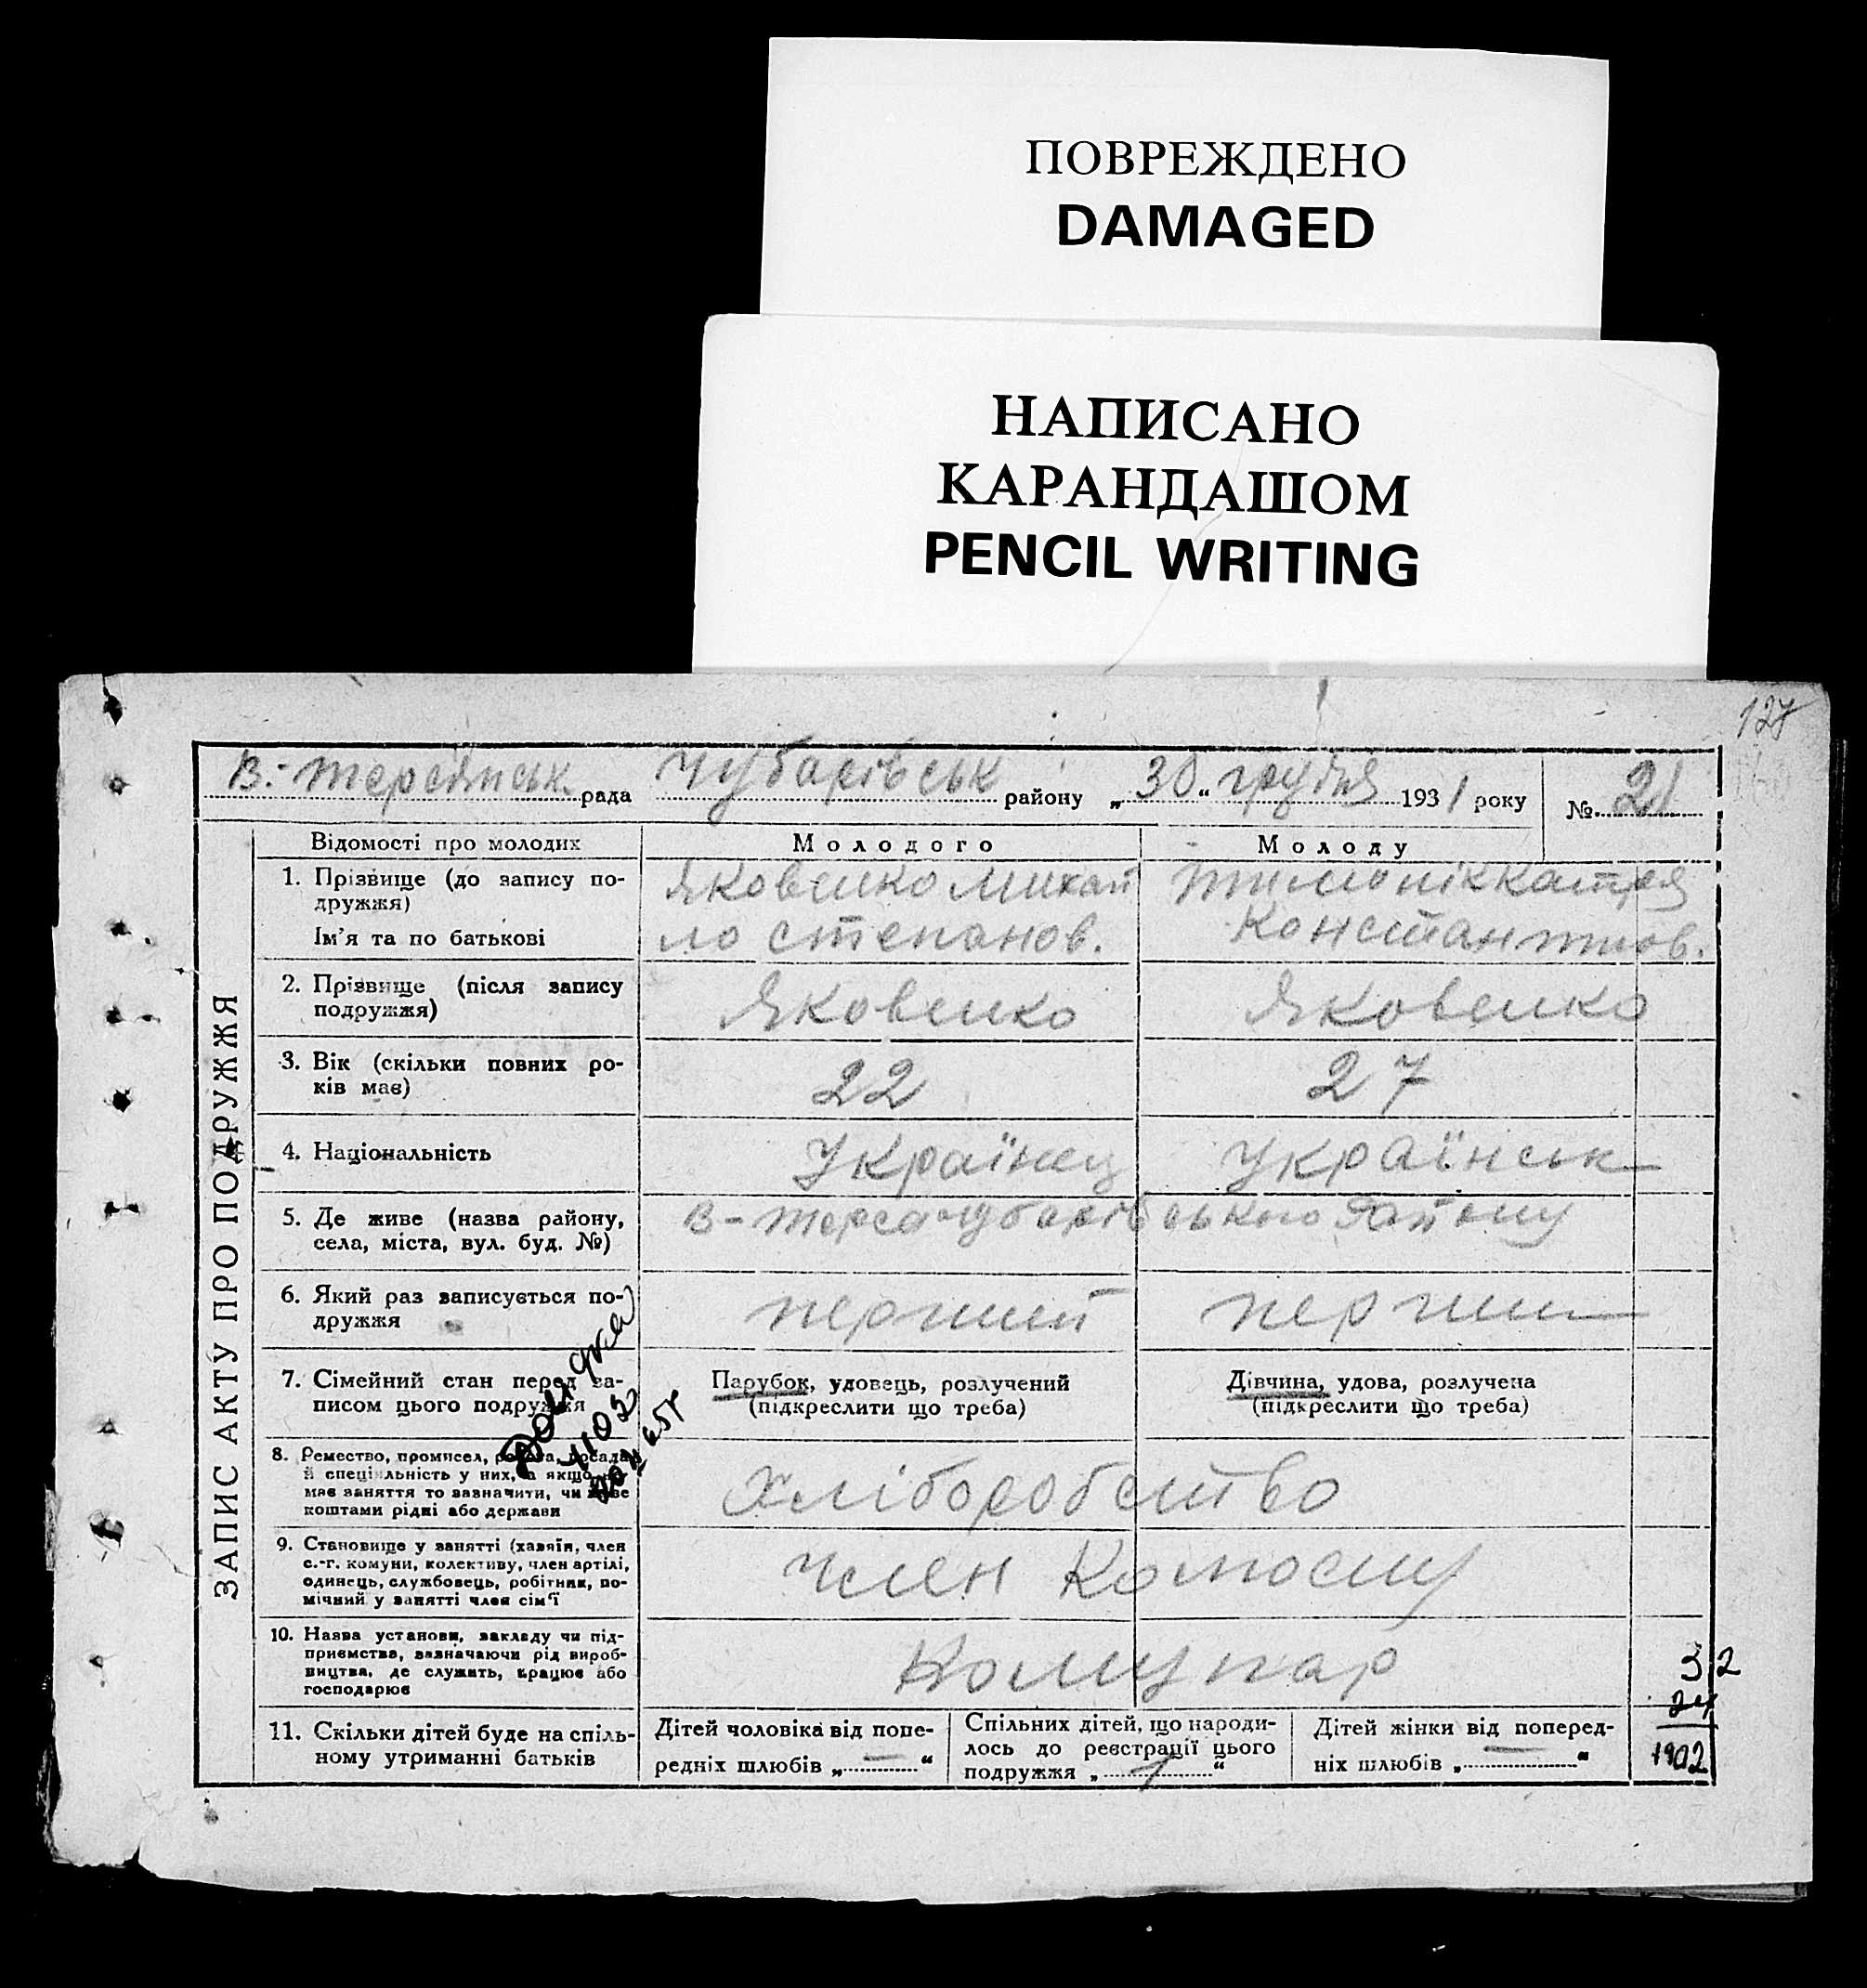 ПОВРЕЖДЕНО
DAMAGED
НАПИСАНО
КАРАНДАШОМ
PENCIL WRITING
127
В.-Терсянськ. рада Чубарівськ району „30" грудня 1931 року № 21
ЗАПИС АКТУ ПРО ПОДРУЖЖЯ
Відомості про молодих Молодого Молоду
1. Прізвище (до запису по- Яковенко Михай
дружжя)
Ім'я та по батькові ло Степанов. Констант
2. Прізвище (після запису
подружжя) Яковенко Яковенко
3. Вік (скільки повних ро-
ків має) 22 27
4. Національність Українец Українськ
5. Де живе (назва району, В-Терса Чубарівського району
села, міста, вул. буд. №)
6. Який раз записується по- перший перши
дружжя
7. Сімейний стан перед за- Парубок, удовець, розлучений Дівчина, удова, розлучена
писом цього подружжя (підкреслити що треба) (підкреслити що треба)
8. Ремество, промисел, робота, посада
й спеціяльність у них, а якщо не
має заняття то зазначити, чи живе Хліборобство
коштами рідні або держави
9. Становище у занятті (хазяїн, член
с.-г. комуни, колективу, член артілі, член
одинець, службовець, робітник, по-
мічний у занятті член сім'ї
10. Назва установи, закладу чи під-
приємства, зазначаючи рід вироб- Комунар
ництва, де служить, працює або 32
господарює
11. Скільки дітей буде на спіль- Дітей чоловіка від попе- Спільних дітей, що народи- Дітей жінки від поперед-
ному утриманні батьків редніх шлюбів „ — " лось до реєстрації цього ніх шлюбів „ — " 1902
подружжя „ 1 "